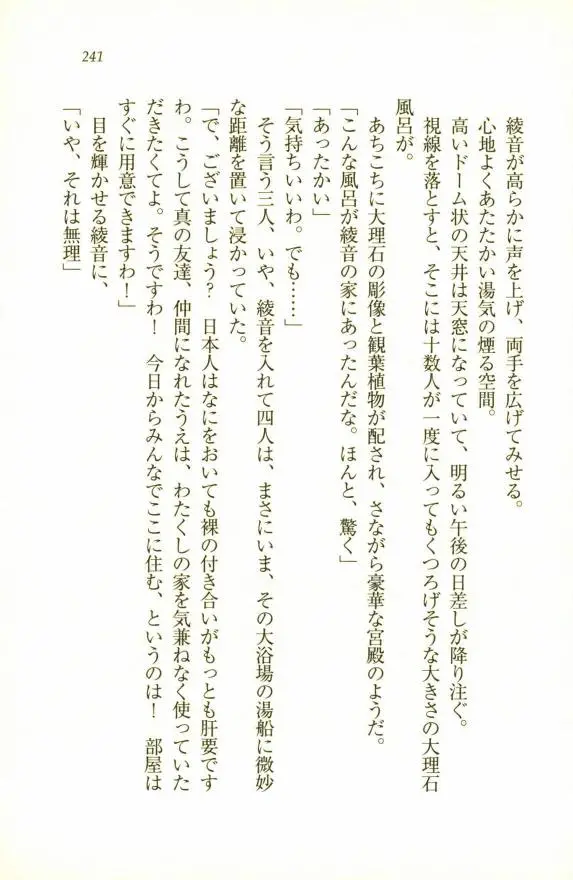 241
綾音が高らかに声を上げ、両手を広げてみせる。
心地よくあたたかい湯気の煙る空間。
高いドーム状の天井は天窓になっていて、明るい午後の日差しが降り注ぐ。
視線を落とすと、そこには十数人が一度に入ってもくつろげそうな大きさの大理石
風呂が。
あちこちに大理石の彫像と観葉植物が配され、さながら豪華な宮殿のようだ。
「こんな風呂が綾音の家にあったんだな。ほんと、驚く」
「あったかい」
「気持ちいいわ。でも……」
そう言う三人、いや、綾音を入れて四人は、まさにいま、その大浴場の湯船に微妙
な距離を置いて浸かっていた。
「で、ございましょう？　日本人はなにをおいても裸の付き合いがもっとも肝要です
わ。こうして真の友達、仲間になれたうえは、わたくしの家を気兼ねなく使っていた
だきたくてよ。そうですわ！　今日からみんなでここに住む、というのは！　部屋は
すぐに用意できますわ！」
目を輝かせる綾音に、
「いや、それは無理」